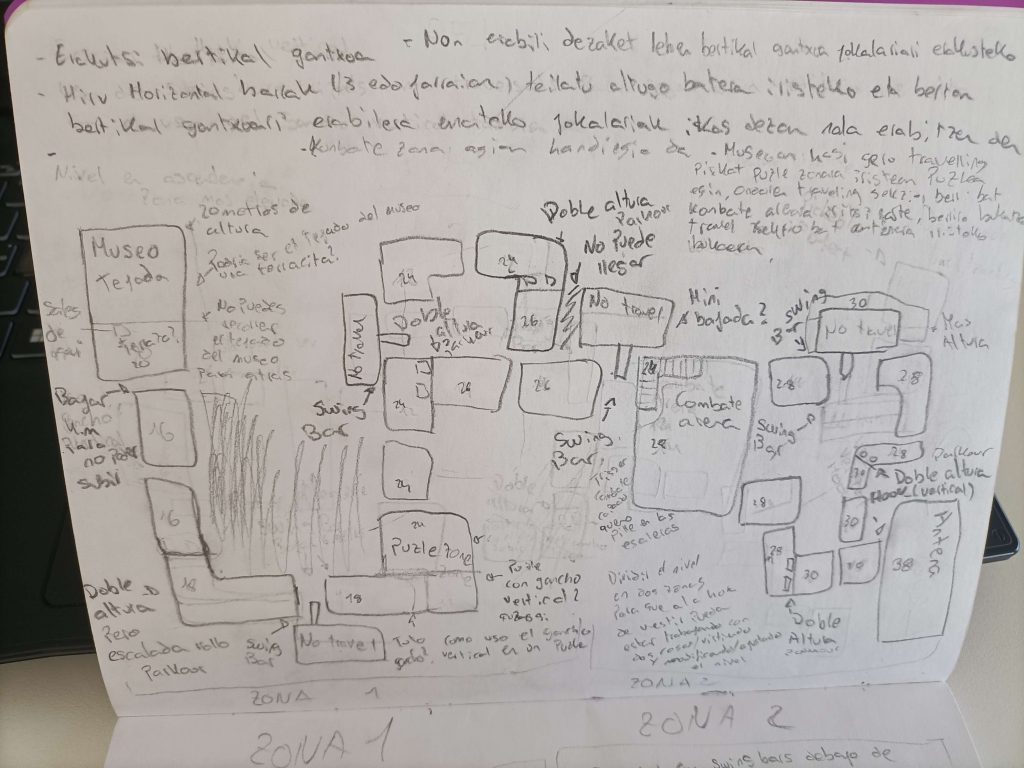 - Erakutsi bertikal gantxoa
- Non erabili dezaket lehen bertikal gantxoa jokalariari erakusteko
- Hiru Horizontal barrak (3 edo jarraian), teilatu altuago batera iristeko eta bertan
bertikal gantxoari erabilera emateko jokalariak ikas dezan nola erabiltzen den
- Konbate zona agian handiegia da
- Museoan hasi gero travelling
Piskat puzle zonara iristean Puzlea
egin, ondoren traveling
konbate arenara iritsi arte, berriro bukatu
travel antenara iristeko
bukaeran.
Nivel en ascendencia
20 metros de
altura
Podria ser el tejado del museo
una terracita.
No puedes
escalar
el tejado
del museo
para atras
Museo
tejado
terraza?
20
Sales
de
aqui
Bajar
un m
para
no poder
subir
16
16
18
Doble
altura
pero
escalada rollo
Parkour
Swing
Bar
No travel
18
Puzle zone
24
24
24
24
26
No travel
Doble
altura
parkour
Swing
Bar
24
24
26
Doble altura
Parkour
No Puede
llegar
No travel
Mini
bajada?
26
Swing
Bar
Combate
arena
28
28
3 swing
Bar
30
No travel
Mas
Altura
28
28
Swing
Bar
28
Parkour
30
Doble altura
Hook (vertical)
30
28
28
30
Doble
Altura
Parkour
Antena
38
Puzle
con gancho
vertical?
como uso el gancho
vertical en un Puzle
Dividir el nivel
en dos zonas
para que a la hora
de vestir puedan
estar trabajando con
dos
el nivel
ZONA 1
ZONA 2
ZONA 1
ZONA 2
swing bars debajo de